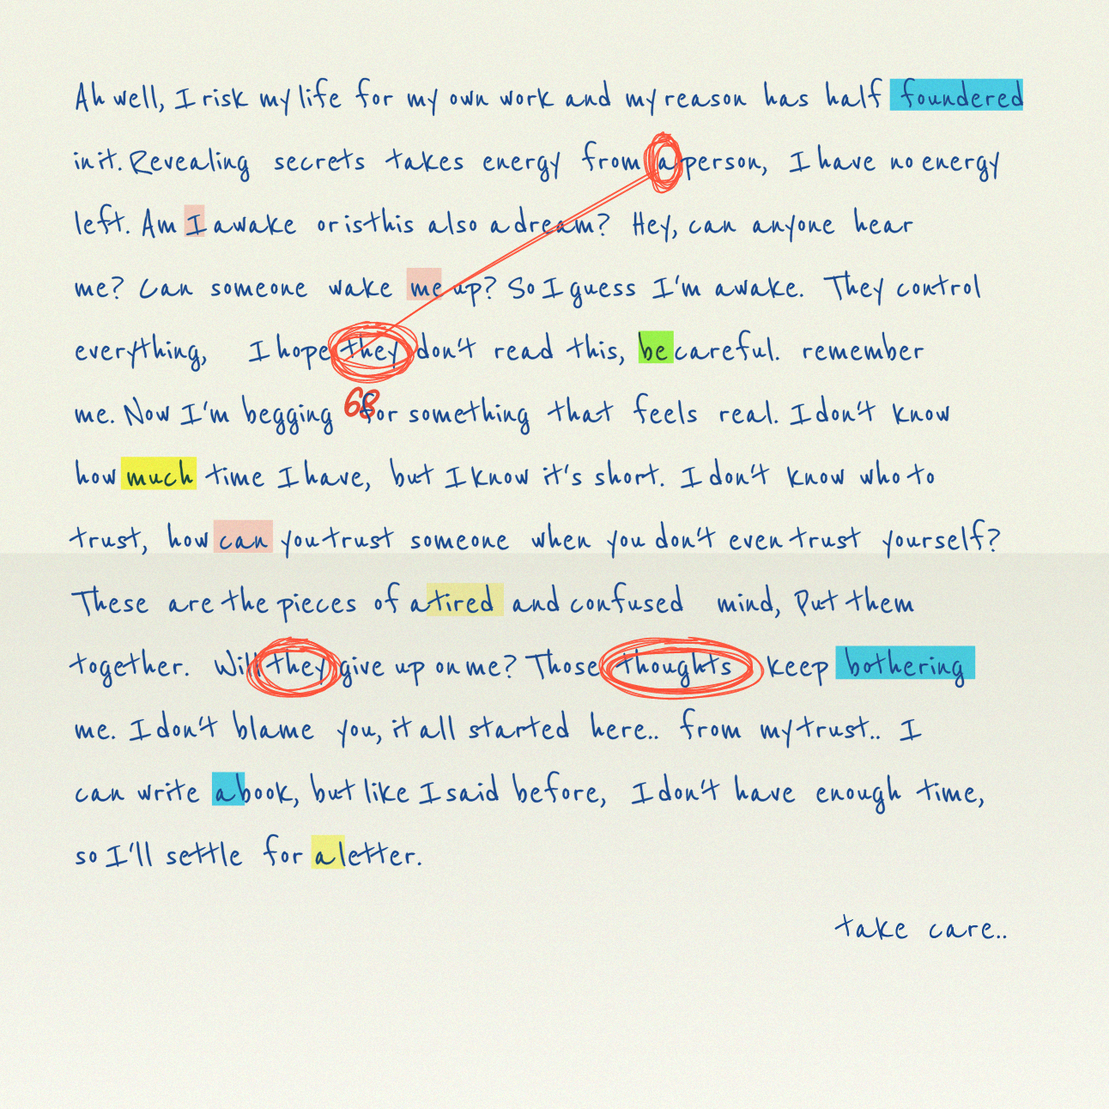 Ah well, I risk my life for my own work and my reason has half foundered
in it. Revealing secrets takes energy from a person, I have no energy
left. Am I awake or is this also a dream? Hey, can anyone hear
me? Can someone wake me up? So I guess I'm awake. They control
everything, I hope they don't read this, be careful. remember
me. Now I'm begging for something that feels real. I don't know
68
how much time I have, but I know it's short. I don't know who to
trust, how can you trust someone when you don't even trust yourself?
These are the pieces of a tired and confused mind, Put them
together. Will they give up on me? Those thoughts keep bothering
me. I don't blame you, it all started here.. from my trust.. I
can write a book, but like I said before, I don't have enough time,
so I'll settle for a letter.
take care..